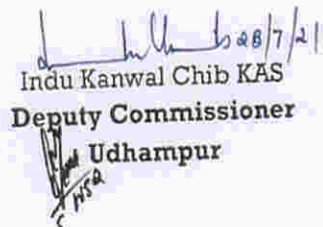 28/7/21
Indu Kanwal Chib KAS
Deputy Commissioner
Udhampur